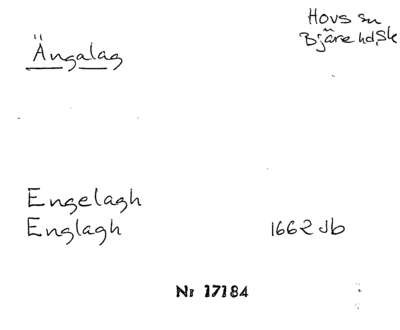 Hovs sn
Bjäre hd, Sk
Ängalag
Engelagh
Englagh 1662 Jb
Nr 17184